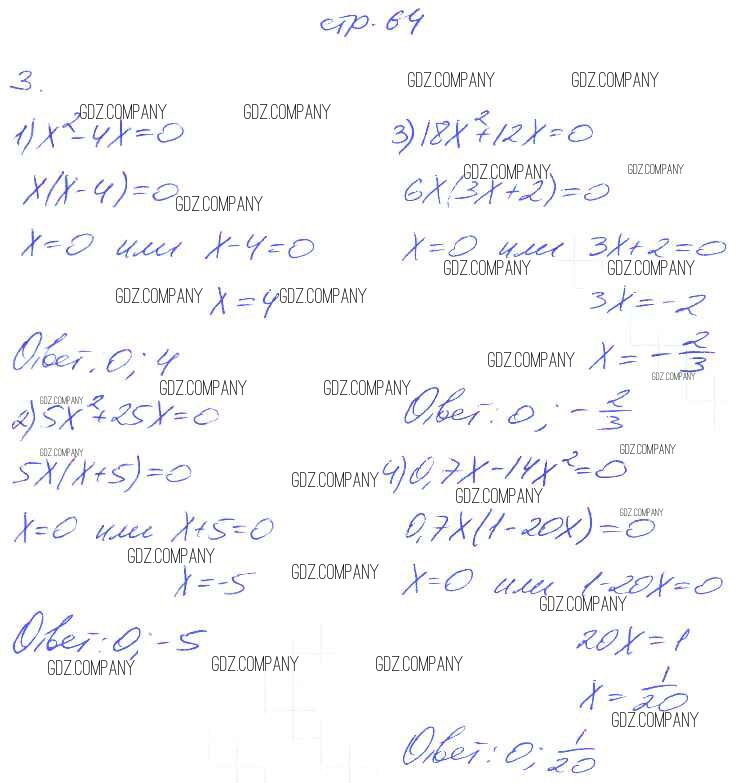 стр. 64
3.
1) x² - 4x = 0
x(x - 4) = 0
x = 0 или x - 4 = 0
x = 4
Ответ. 0; 4
2) 5x² + 25x = 0
5x(x + 5) = 0
x = 0 или x + 5 = 0
x = -5
Ответ: 0; -5
3) 18x² + 12x = 0
6x(3x + 2) = 0
x = 0 или 3x + 2 = 0
3x = -2
x = -2/3
Ответ: 0; -2/3
4) 0,7x - 14x² = 0
0,7x(1 - 20x) = 0
x = 0 или 1 - 20x = 0
20x = 1
x = 1/20
Ответ: 0; 1/20
GDZ.COMPANY GDZ.COMPANY
GDZ.COMPANY GDZ.COMPANY
GDZ.COMPANY GDZ.COMPANY
GDZ.COMPANY
GDZ.COMPANY GDZ.COMPANY
GDZ.COMPANY GDZ.COMPANY
GDZ.COMPANY
GDZ.COMPANY
GDZ.COMPANY GDZ.COMPANY
GDZ.COMPANY
GDZ.COMPANY GDZ.COMPANY
GDZ.COMPANY
GDZ.COMPANY
GDZ.COMPANY
GDZ.COMPANY
GDZ.COMPANY
GDZ.COMPANY
GDZ.COMPANY GDZ.COMPANY GDZ.COMPANY
GDZ.COMPANY